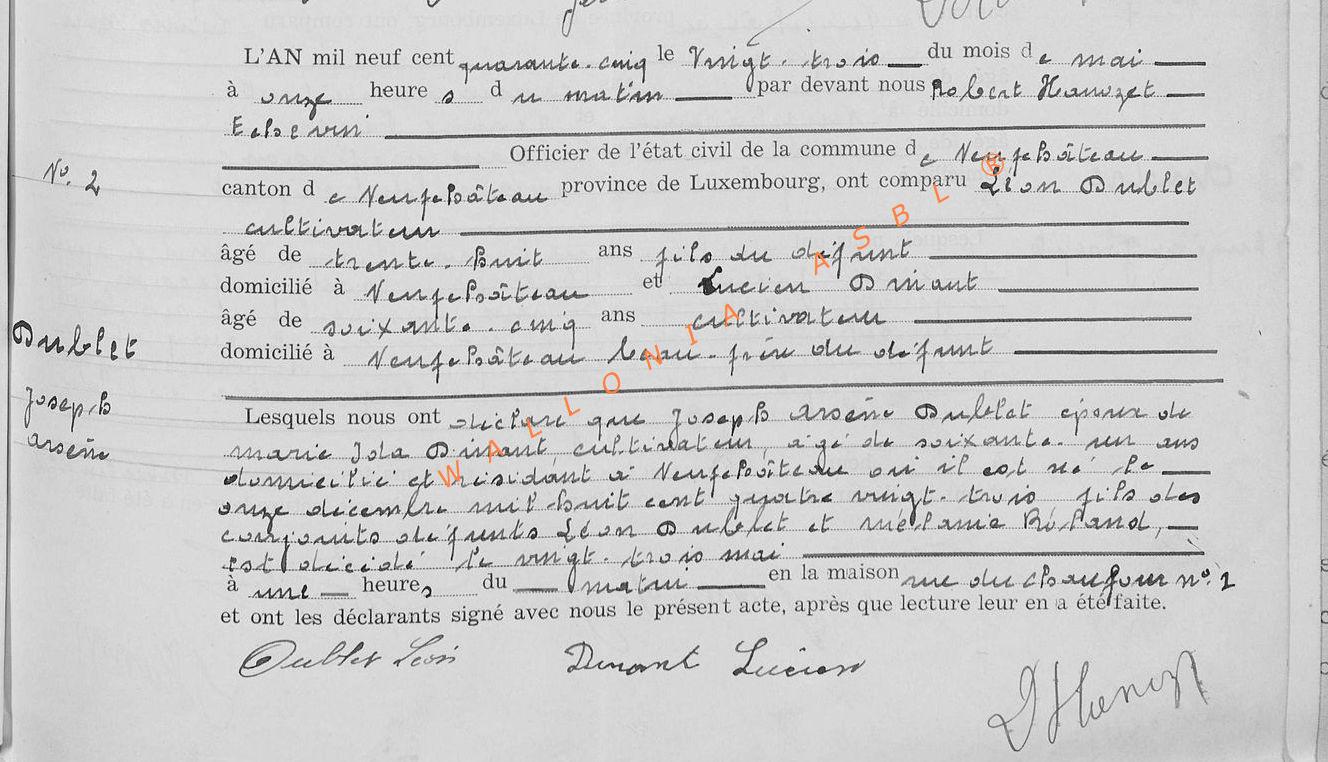 L'AN mil neuf cent quarante-cinq le Vingt-trois du mois de mai
à onze heures du matin par devant nous Robert Hanozet
Echevin
Officier de l'état civil de la commune de Neufchâteau
N°. 2
canton de Neufchâteau province de Luxembourg, ont comparu Léon Dublet
cultivateur
âgé de trente-huit ans fils du défunt
domicilié à Neufchâteau et Lucien Dinant
âgé de soixante-cinq ans cultivateur
domicilié à Neufchâteau beau-frère du défunt
Dublet
Joseph
Arsène
Lesquels nous ont déclaré que Joseph Arsène Dublet époux de
Marie Ida Dinant, cultivateur, âgé de soixante-un ans
domicilié et résidant à Neufchâteau où il est né le
onze décembre mil huit cent quatre vingt-trois fils des
conjoints défunts Léon Dublet et Mélanie Roland,
est décédé le vingt-trois mai
à une heures du matin en la maison rue du Chaufour n°. 1
et ont les déclarants signé avec nous le présent acte, après que lecture leur en a été faite.
Dublet Léon Dinant Lucien
WALLONIA ASBL ®